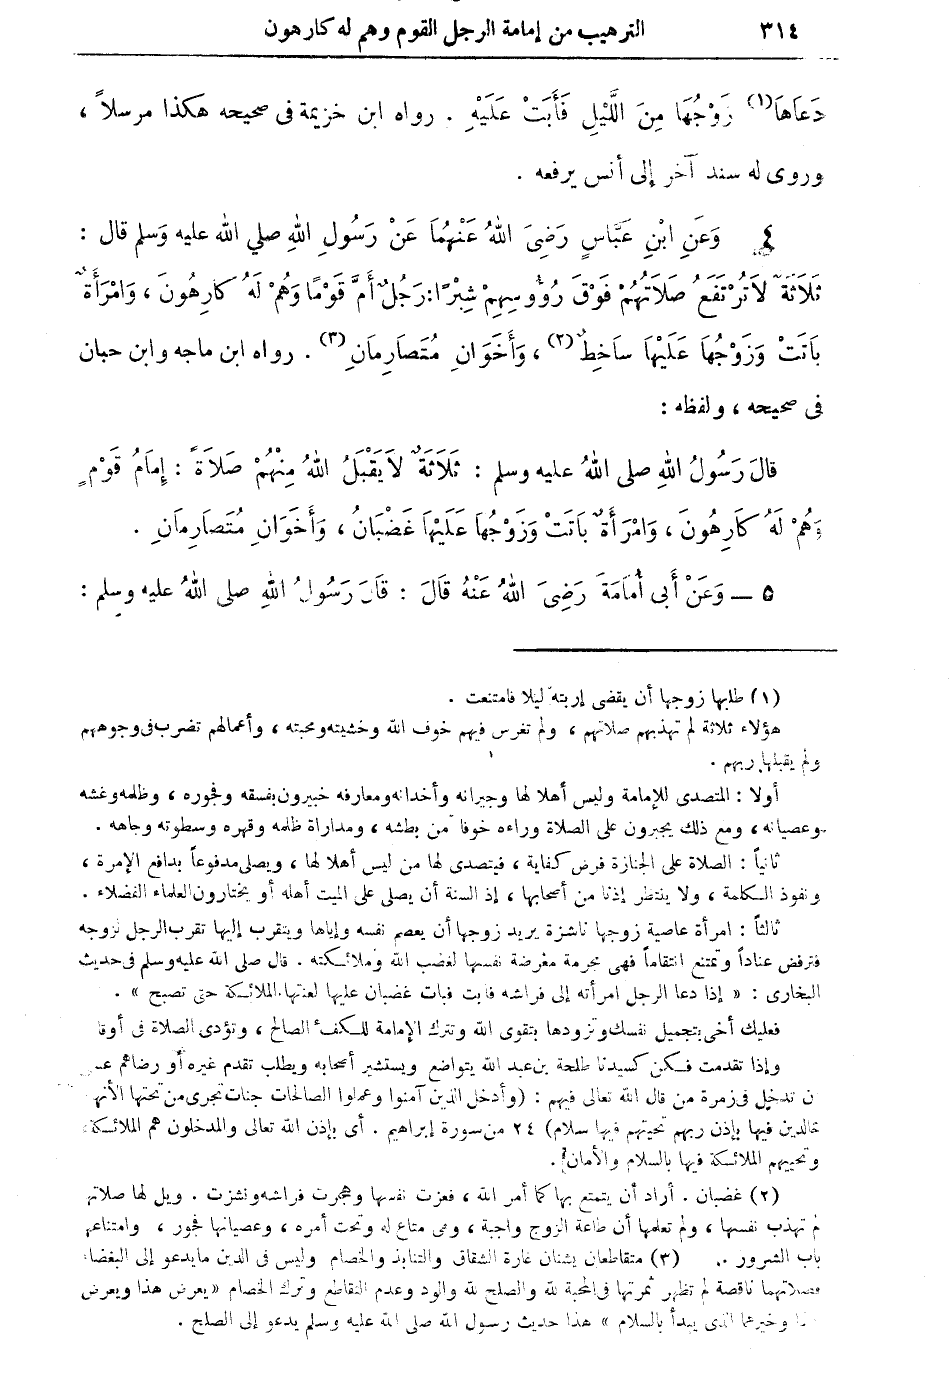 ٣١٤ الترهيب من إمامة الرجل القوم وهم له كارهون
دَعَاهَا(١) زَوْجُهَا مِنَ اللَّيْلِ فَأَبَتْ عَلَيْهِ . رواه ابن خزيمة فى صحيحه هكذا مرسلاً ،
وروى له سند آخر إلى أنس يرفعه .
٤ وَعَنِ ابْنِ عَبَّاسٍ رَضِىَ اللهُ عَنْهُمَا عَنْ رَسُولِ اللهِ صلي الله عليه وَسلم قال :
ثَلَاثَةٌ لاَ تُرْتَفَعُ صَلَاتُهُمْ فَوْقَ رُؤُوسِهِمْ شِبْرًا : رَجُلٌ أَمَّ قَوْمًا وَهُمْ لَهُ كَارِهُونَ ، وَامْرَأَةٌ
بَاتَتْ وَزَوْجُهَا عَلَيْهَا سَاخِطٌ(٢) ، وَأَخَوَانِ مُتَصَارِمَانِ(٣) . رواه ابن ماجه وابن حبان
فى صحيحه ، ولفظه :
قالَ رَسُولُ اللهِ صلى اللهُ عليه وسلم : ثَلَاثَةٌ لاَ يَقْبَلُ اللهُ مِنْهُمْ صَلَاةً : إِمَامُ قَوْمٍ
وَهُمْ لَهُ كَارِهُونَ ، وَامْرَأَةٌ بَاتَتْ وَزَوْجُهَا عَلَيْهَا غَضْبَانُ ، وَأَخَوَانِ مُتَصَارِمَانِ .
٥ — وَعَنْ أَبى أُمَامَةَ رَضِىَ اللهُ عَنْهُ قَالَ : قَالَ رَسُولُ اللهِ صلى اللهُ عليه وسلم :
(١) طلبها زوجها أن يقضى إربته ليلا فامتنعت .
هؤلاء ثلاثة لم تهذبهم صلاتهم ، ولم تغرس فيهم خوف الله وخشيته ومحبته ، وأعمالهم تضرب فى وجوههم
ولم يقبلها ربهم .
أولا : المتصدى للإمامة وليس أهلا لها وجيرانه وأخدانه ومعارفه خبيرون بفسقه وفجوره ، وظلمه وغشه
وعصيانه ، ومع ذلك يجبرون على الصلاة وراءه خوفا من بطشه ، ومداراة ظلمه وقهره وسطوته وجاهه .
ثانياً : الصلاة على الجنازة فرض كفاية ، فيتصدى لها من ليس أهلا لها ، ويصلى مدفوعاً بدافع الإمرة ،
ونفوذ الكلمة ، ولا ينتظر إذنا من أصحابها ، إذ السنة أن يصلى على الميت أهله أو يختارون العلماء الفضلاء .
ثالثاً : امرأة عاصية زوجها ناشزة يريد زوجها أن يعصم نفسه وإياها ويتقرب إليها تقرب الرجل لزوجه
فترفض عناداً وتمتنع انتقاماً فهى مجرمة معرضة نفسها لغضب الله وملائكته . قال صلى الله عليه وسلم فى حديث
البخارى : « إذا دعا الرجل امرأته إلى فراشه فأبت فبات غضبان عليها لعنتها الملائكة حتى تصبح » .
فعليك أخى بتجميل نفسك وتزودها بتقوى الله وتترك الإمامة للكفء الصالح ، وتؤدى الصلاة فى أوقا
وإذا تقدمت فكن كسيدنا طلحة بن عبد الله يتواضع ويستشير أصحابه ويطلب تقدم غيره أو رضاهم
ن تدخل فى زمرة من قال الله تعالى فيهم : (وأدخل الذين آمنوا وعملوا الصالحات جنات تجرى من تحتها الأنه
خالدين فيها بإذن ربهم تحيتهم فيها سلام) ٢٤ من سورة إبراهيم . أى بإذن الله تعالى والمدخلون هم الملائكة
وتحييهم الملائكة فيها بالسلام والأمان .
(٢) غضبان . أراد أن يتمتع بها كما أمر الله ، فعزت نفسها وهجرت فراشه ونشزت . ويل لها صلاته
لم تهذب نفسها ، ولم تعلمها أن طاعة الزوج واجبة ، وهى متاع له وتحت أمره ، وعصيانها فجور ، وامتناعه
باب الشرور . (٣) متقاطعان يشنان غارة الشقاق والتنابذ والخصام وليس فى الدين ما يدعو إلى البغضاء
فصلاتهما ناقصة لم تظهر ثمرتها فى المحبة لله والصلح لله والود وعدم التقاطع وترك الخصام «يعرض هذا ويعرض
هذا وخيرهما الذى يبدأ بالسلام » هذا حديث رسول الله صلى الله عليه وسلم يدعو إلى الصلح .